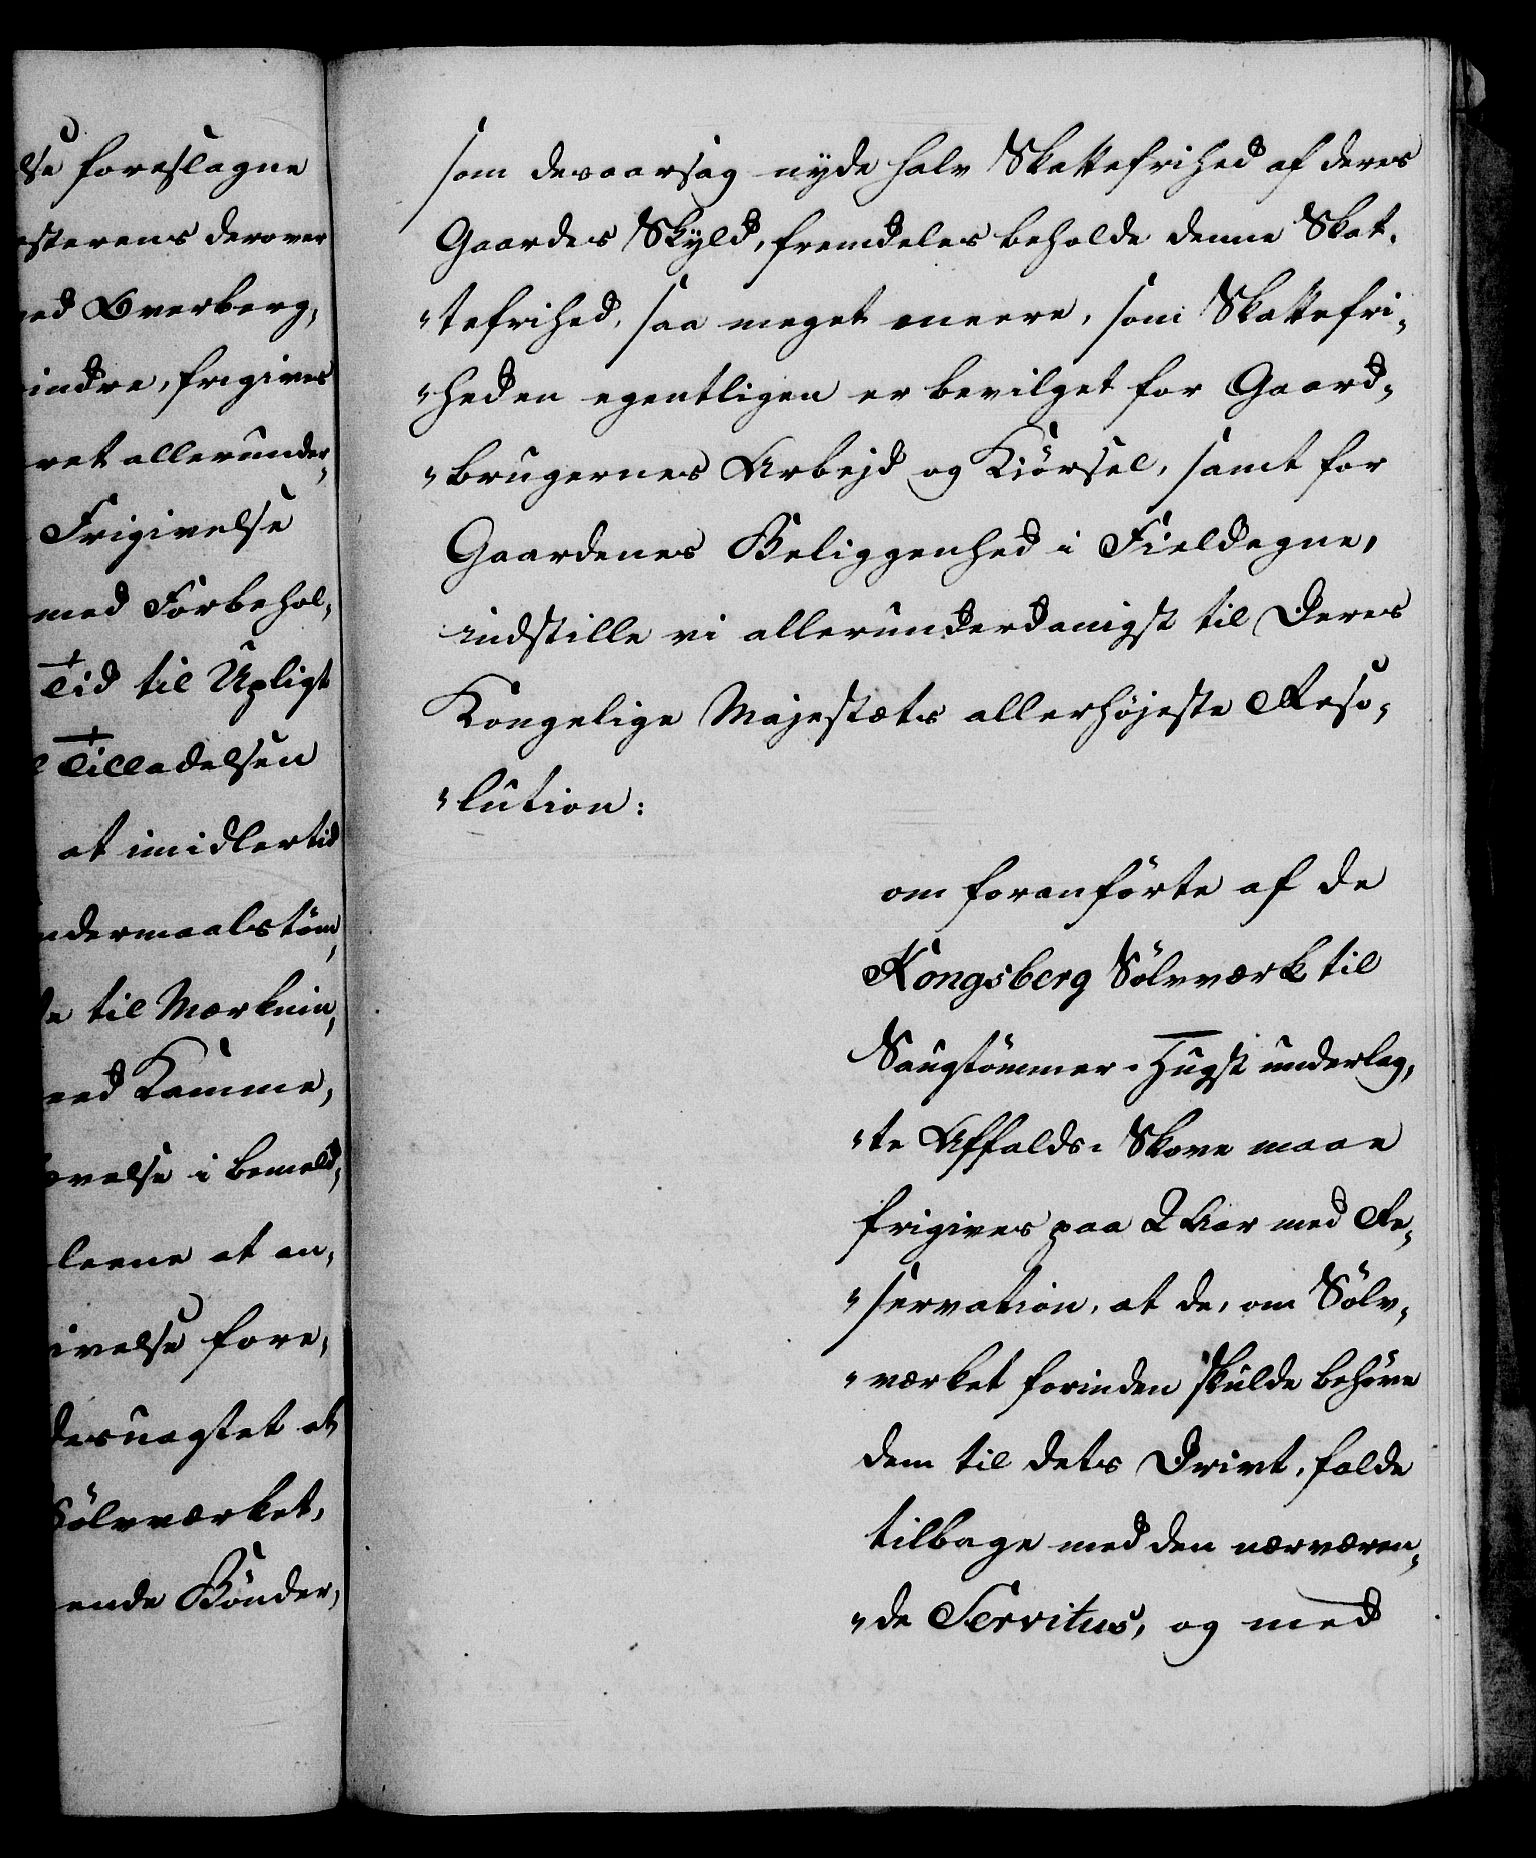 lse foreslagne
esterens derover
ved Overberg,
indre, frigives
ret allerunder,
Frigivelse
med Forbehol,
Tid til Upligt
l Tilladelsen
at imidlertid
ndermaalstøm,
te til Mærknin,
med Kamme,
øvelse i bemeld,
leene at an,
ivelse fore,
desuagtet at
Sölvværket,
ende Bönder,
som desaarsag nyde halv Skattefrihed af deres
Gaardes Skyld, fremdeles beholde denne Skat,
"tefrihed, saa meget meere, som Skattefri,
"heden egentligen er bevilget for Gaard,
"brugernes Arbejd og Kiörsel, samt for
Gaardenes Beliggenhed i Fieldegne,
indstille vi allerunderdanigst til Deres
Kongelige Majestæts allerhöjeste Reso,
"lution:
om foranförte af de
Kongsberg Sölvværk til
Saugtömmer-Hugst underlag,
"te Affalds-Skove maae
frigives paa 2 Aar med Re,
"servation, at de, om Sölv,
"værket forinden skulde behöve
dem til dets Drivt, falde
tilbage med den nærværen,
"de Servitus, og med